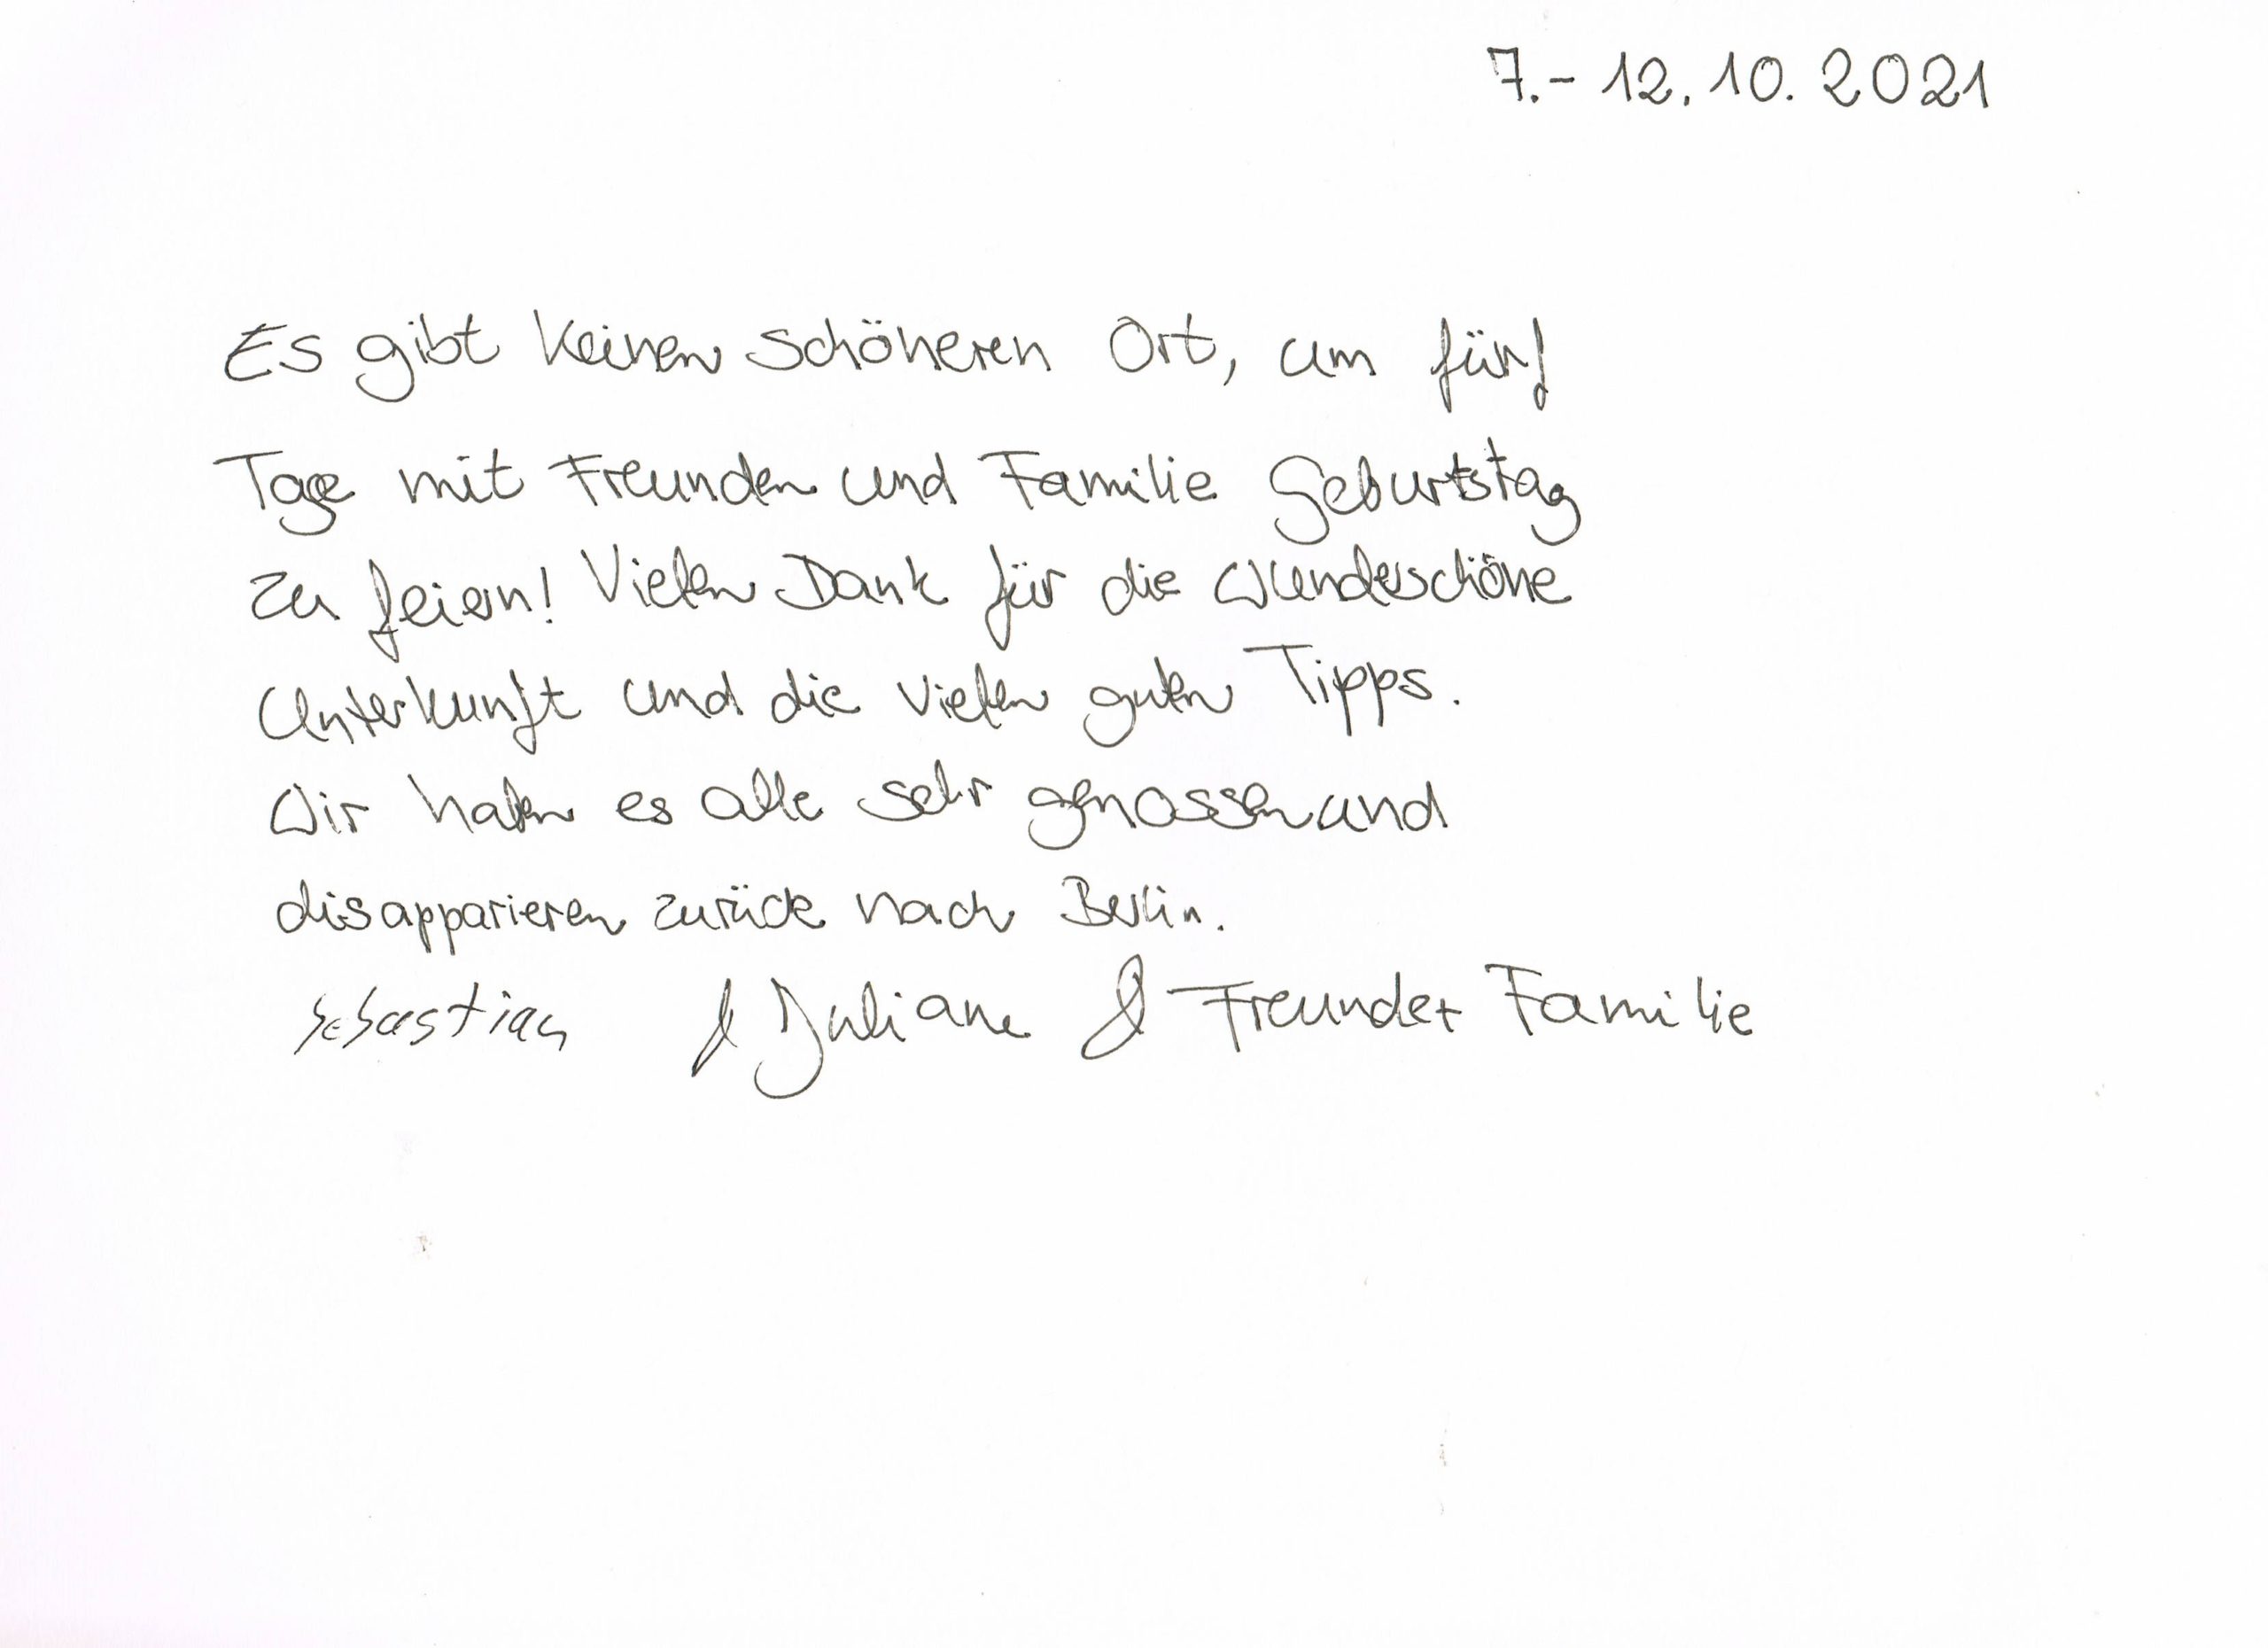 7.- 12.10.2021
Es gibt keinen schöneren Ort, um fünf
Tage mit Freunden und Familie Geburtstag
zu feiern! Vielen Dank für die wunderschöne
Unterkunft und die vielen guten Tipps.
Wir haben es alle sehr genossen und
disapparieren zurück nach Berlin.
Sebastian & Juliane & Freunde + Familie